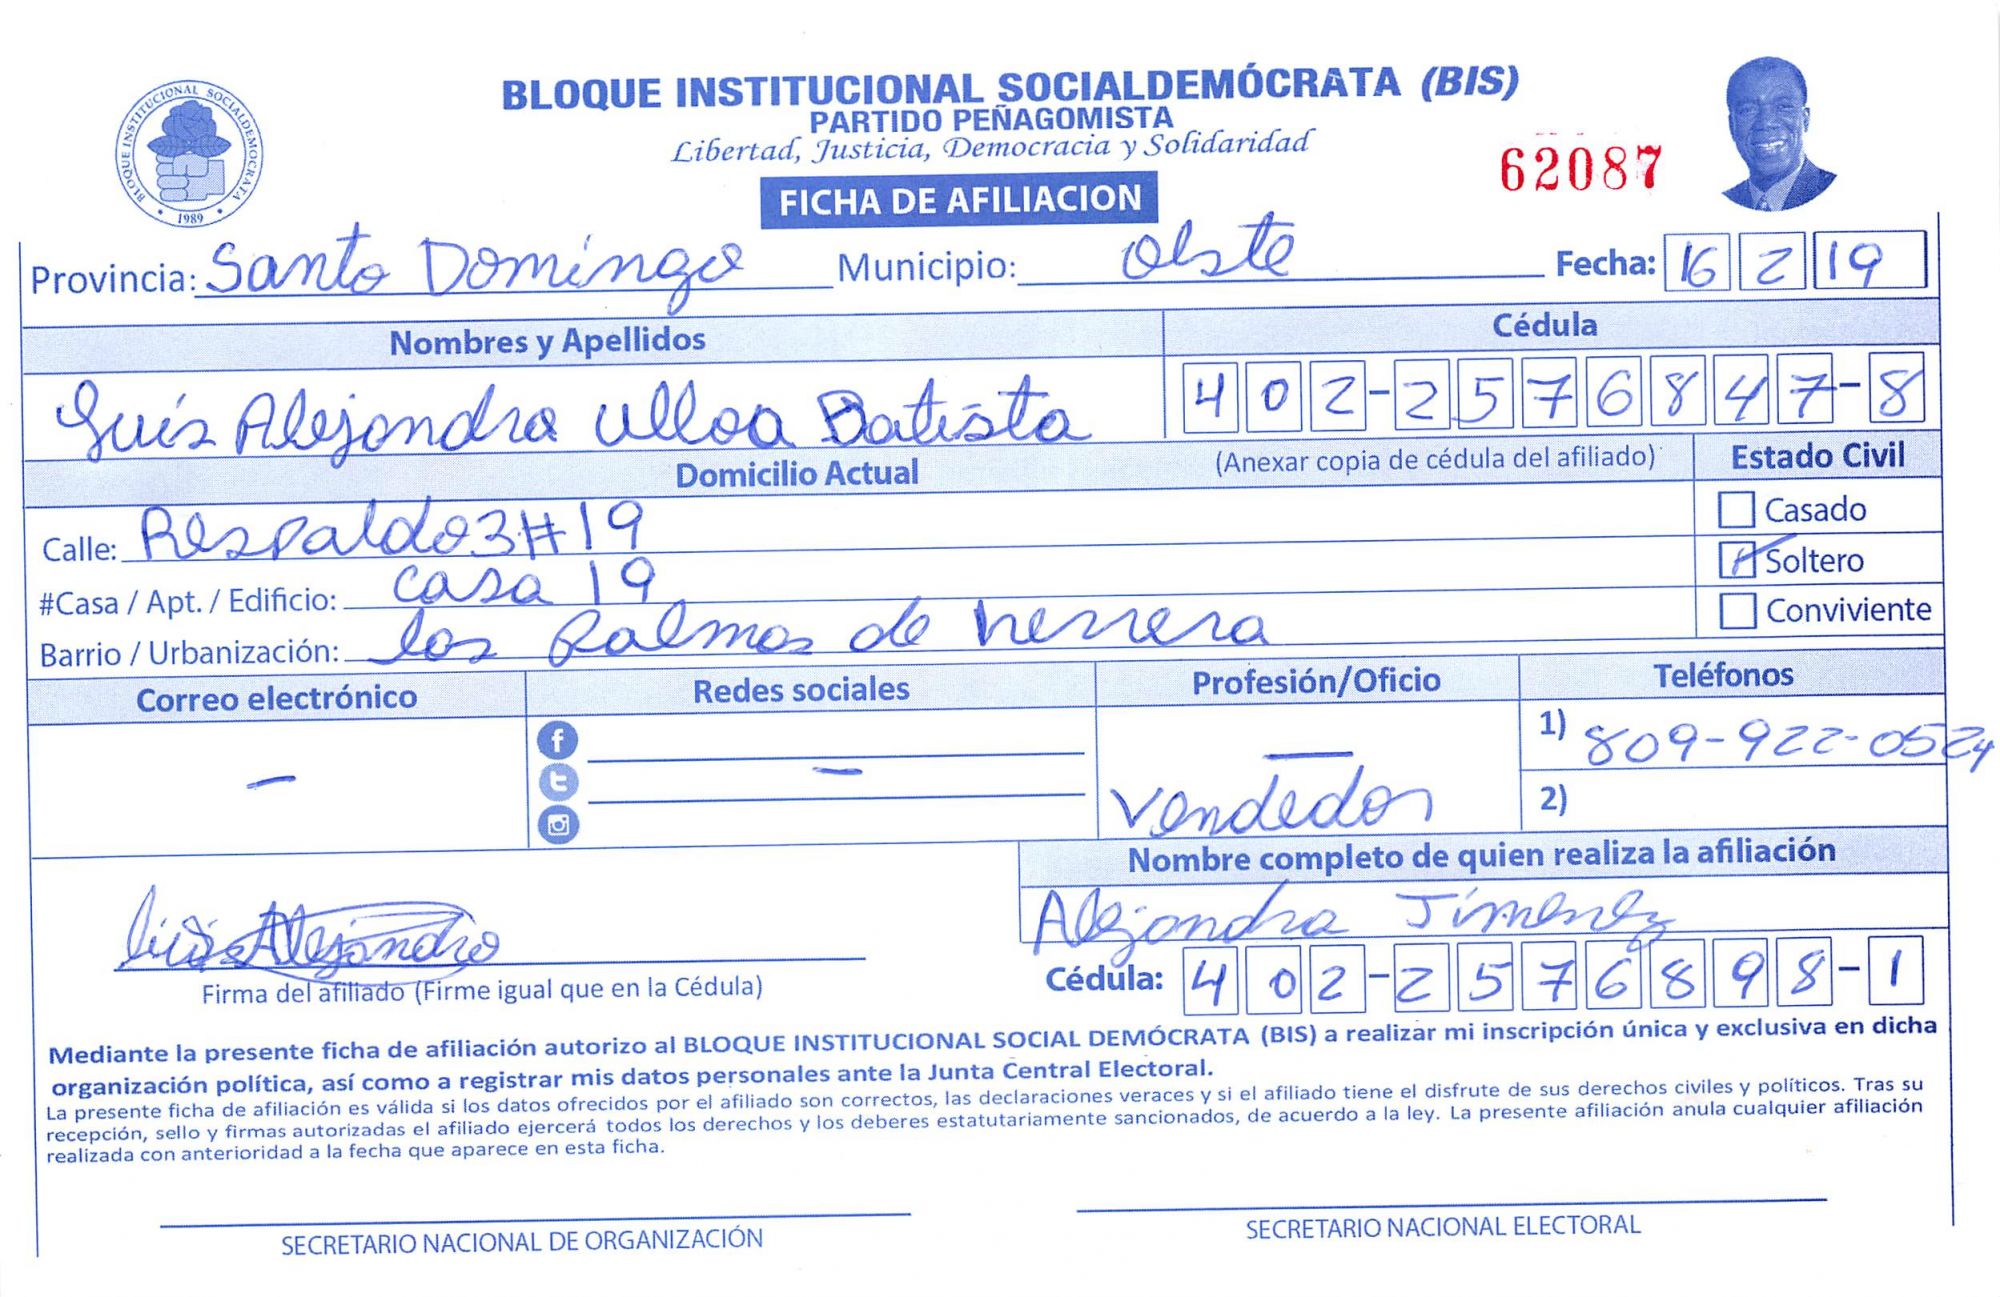 BLOQUE INSTITUCIONAL SOCIALDEMÓCRATA (BIS)
PARTIDO PEÑAGOMISTA
Libertad, Justicia, Democracia y Solidaridad
62087
FICHA DE AFILIACION
BLOQUE INSTITUCIONAL SOCIALDEMOCRATA
1989
Provincia: Santo Domingo Municipio: Oeste Fecha: 16 2 19
Nombres y Apellidos Cédula
Luis Alejandro Ulloa Batista 402-2576847-8
Domicilio Actual (Anexar copia de cédula del afiliado) Estado Civil
Calle: Respaldo 3 #19 Casado
#Casa / Apt. / Edificio: casa 19 Soltero
Barrio / Urbanización: las Palmas de herrera Conviviente
Correo electrónico Redes sociales Profesión/Oficio Teléfonos
1) 809-922-0524
- - — Vendedor 2)
Nombre completo de quien realiza la afiliación
Luis Alejandro Alejandra Jimenez
Firma del afiliado (Firme igual que en la Cédula) Cédula: 402-2576898-1
Mediante la presente ficha de afiliación autorizo al BLOQUE INSTITUCIONAL SOCIAL DEMÓCRATA (BIS) a realizar mi inscripción única y exclusiva en dicha
organización política, así como a registrar mis datos personales ante la Junta Central Electoral.
La presente ficha de afiliación es válida si los datos ofrecidos por el afiliado son correctos, las declaraciones veraces y si el afiliado tiene el disfrute de sus derechos civiles y políticos. Tras su
recepción, sello y firmas autorizadas el afiliado ejercerá todos los derechos y los deberes estatutariamente sancionados, de acuerdo a la ley. La presente afiliación anula cualquier afiliación
realizada con anterioridad a la fecha que aparece en esta ficha.
SECRETARIO NACIONAL DE ORGANIZACIÓN SECRETARIO NACIONAL ELECTORAL